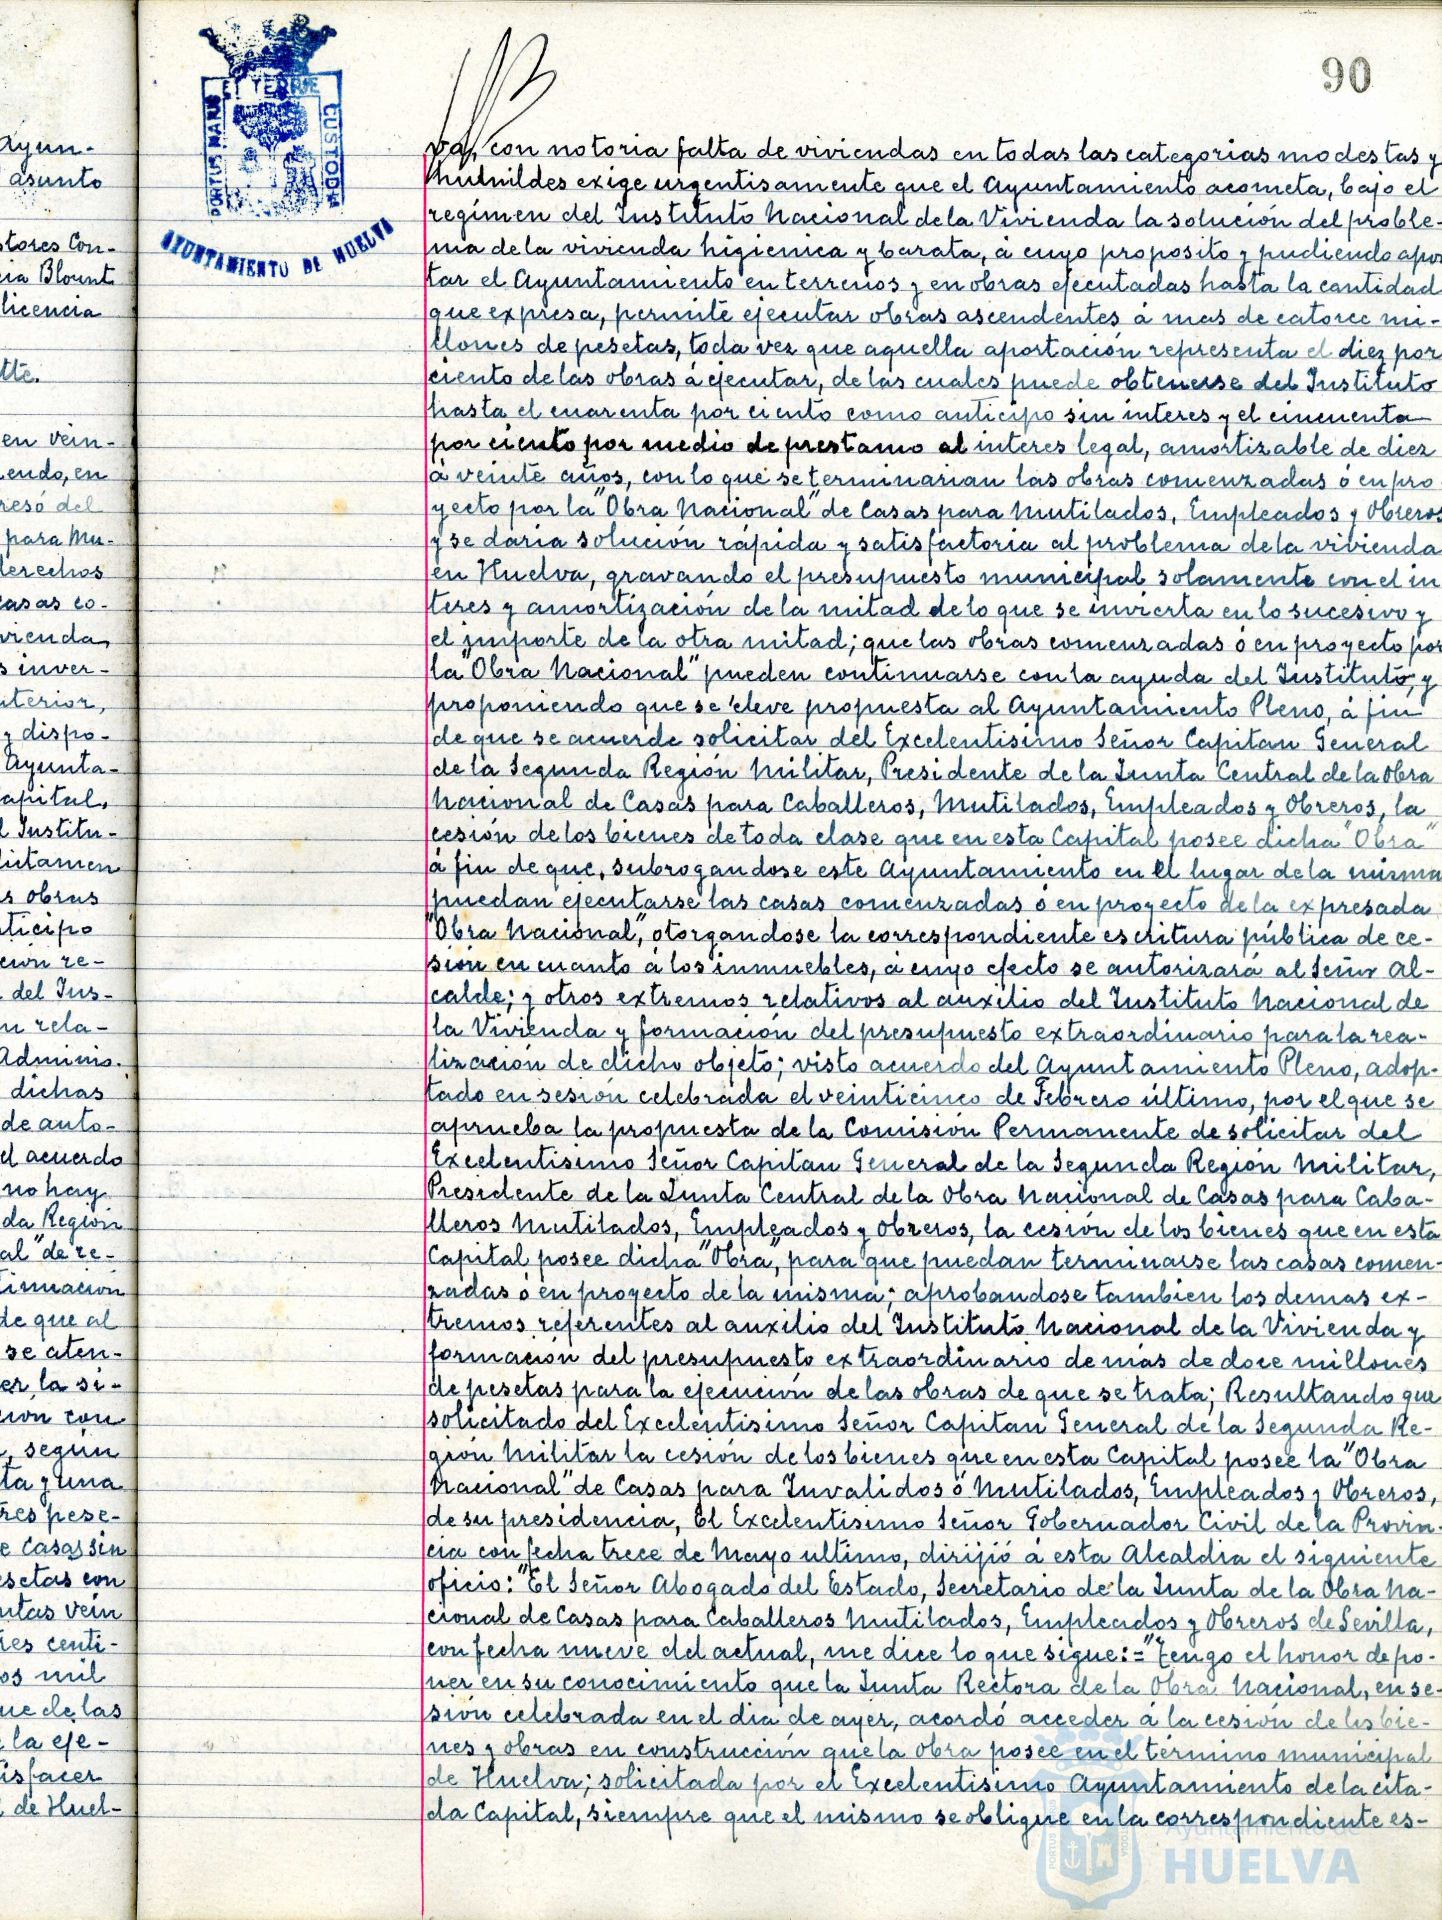 Ayun-
asunto
stores Con-
cia Blount
licencia
tte.
en vein-
endo, en
resó del
para Mu-
derechos
casas co-
vienda,
s inver-
nterior,
y dispo-
Ayunta-
apital,
l Institu-
dictamen
s obras
nticipo
ción re-
del Ins-
n rela-
Adminis.
dichas
de auto-
el acuerdo
no hay
da Región
al" de re-
timación
de que al
se aten-
er la si-
ción con
, según
ta y una
res pese-
e Casas sin
esetas con
ntas vein
res centi-
os mil
ue de las
la eje-
isfacer
de Huel-
PORTUS MARIS
ET TERRE
CUSTODIA
AYUNTAMIENTO DE HUELVA
90
va, con notoria falta de viviendas en todas las categorias modestas y
humildes exige urgentisamente que el Ayuntamiento acometa, bajo el
regimen del Instituto Nacional de la Vivienda la solución del proble-
ma de la vivienda higienica y barata, á cuyo proposito y pudiendo apor
tar el Ayuntamiento en terrenos y en obras ejecutadas hasta la cantidad
que expresa, permite ejecutar obras ascendentes á mas de catorce mi-
llones de pesetas, toda vez que aquella aportación representa el diez por
ciento de las obras á ejecutar, de las cuales puede obtenerse del Instituto
hasta el cuarenta por ciento como anticipo sin interes y el cincuenta
por ciento por medio de prestamo al interes legal, amortizable de diez
á veinte años, con lo que se terminarian las obras comenzadas ó en pro
yecto por la "Obra Nacional" de Casas para Mutilados, Empleados y Obreros
y se daria solución rápida y satisfactoria al problema de la vivienda
en Huelva, gravando el presupuesto municipal solamente con el in
teres y amortización de la mitad de lo que se invierta en lo sucesivo y
el importe de la otra mitad; que las obras comenzadas ó en proyecto por
la "Obra Nacional" pueden continuarse con la ayuda del Instituto, y
proponiendo que se eleve propuesta al Ayuntamiento Pleno, á fin
de que se acuerde solicitar del Excelentisimo Señor Capitan General
de la Segunda Región Militar, Presidente de la Junta Central de la Obra
Nacional de Casas para Caballeros, Mutilados, Empleados y Obreros, la
cesión de los bienes de toda clase que en esta Capital posee dicha "Obra"
á fin de que, subrogandose este Ayuntamiento en el lugar de la misma
puedan ejecutarse las casas comenzadas ó en proyecto de la expresada
"Obra Nacional", otorgandose la correspondiente escritura pública de ce-
sión en cuanto á los inmuebles, á cuyo efecto se autorizará al Señor Al-
calde; y otros extremos relativos al auxilio del Instituto Nacional de
la Vivienda y formación del presupuesto extraordinario para la rea-
lización de dicho objeto; visto acuerdo del Ayuntamiento Pleno, adop-
tado en sesión celebrada el veinticinco de Febrero último, por el que se
aprueba la propuesta de la Comisión Permanente de solicitar del
Excelentisimo Señor Capitan General de la Segunda Región Militar,
Presidente de la Junta Central de la Obra Nacional de Casas para Caba-
lleros Mutilados, Empleados y Obreros, la cesión de los bienes que en esta
Capital posee dicha "Obra", para que puedan terminarse las casas comen-
zadas ó en proyecto de la misma; aprobandose tambien los demas ex-
tremos referentes al auxilio del Instituto Nacional de la Vivienda y
formación del presupuesto extraordinario de más de doce millones
de pesetas para la ejecución de las obras de que se trata; Resultando que
solicitado del Excelentisimo Señor Capitan General de la Segunda Re-
gión Militar la cesión de los bienes que en esta Capital posee la "Obra
Nacional" de Casas para Invalidos ó Mutilados, Empleados y Obreros,
de su presidencia, El Excelentisimo Señor Gobernador Civil de la Provin-
cia con fecha trece de Mayo ultimo, dirijió á esta Alcaldia el siguiente
oficio: "El Señor Abogado del Estado, Secretario de la Junta de la Obra Na-
cional de Casas para Caballeros Mutilados, Empleados y Obreros de Sevilla,
con fecha nueve del actual, me dice lo que sigue:="Tengo el honor de po-
ner en su conocimiento que la Junta Rectora de la Obra Nacional, en se-
sión celebrada en el dia de ayer, acordó acceder á la cesión de los bie-
nes y obras en construcción que la Obra posee en el término municipal
de Huelva; solicitada por el Excelentisimo Ayuntamiento de la cita-
da Capital, siempre que el mismo se obligue en la correspondiente es-
Ayuntamiento de
HUELVA